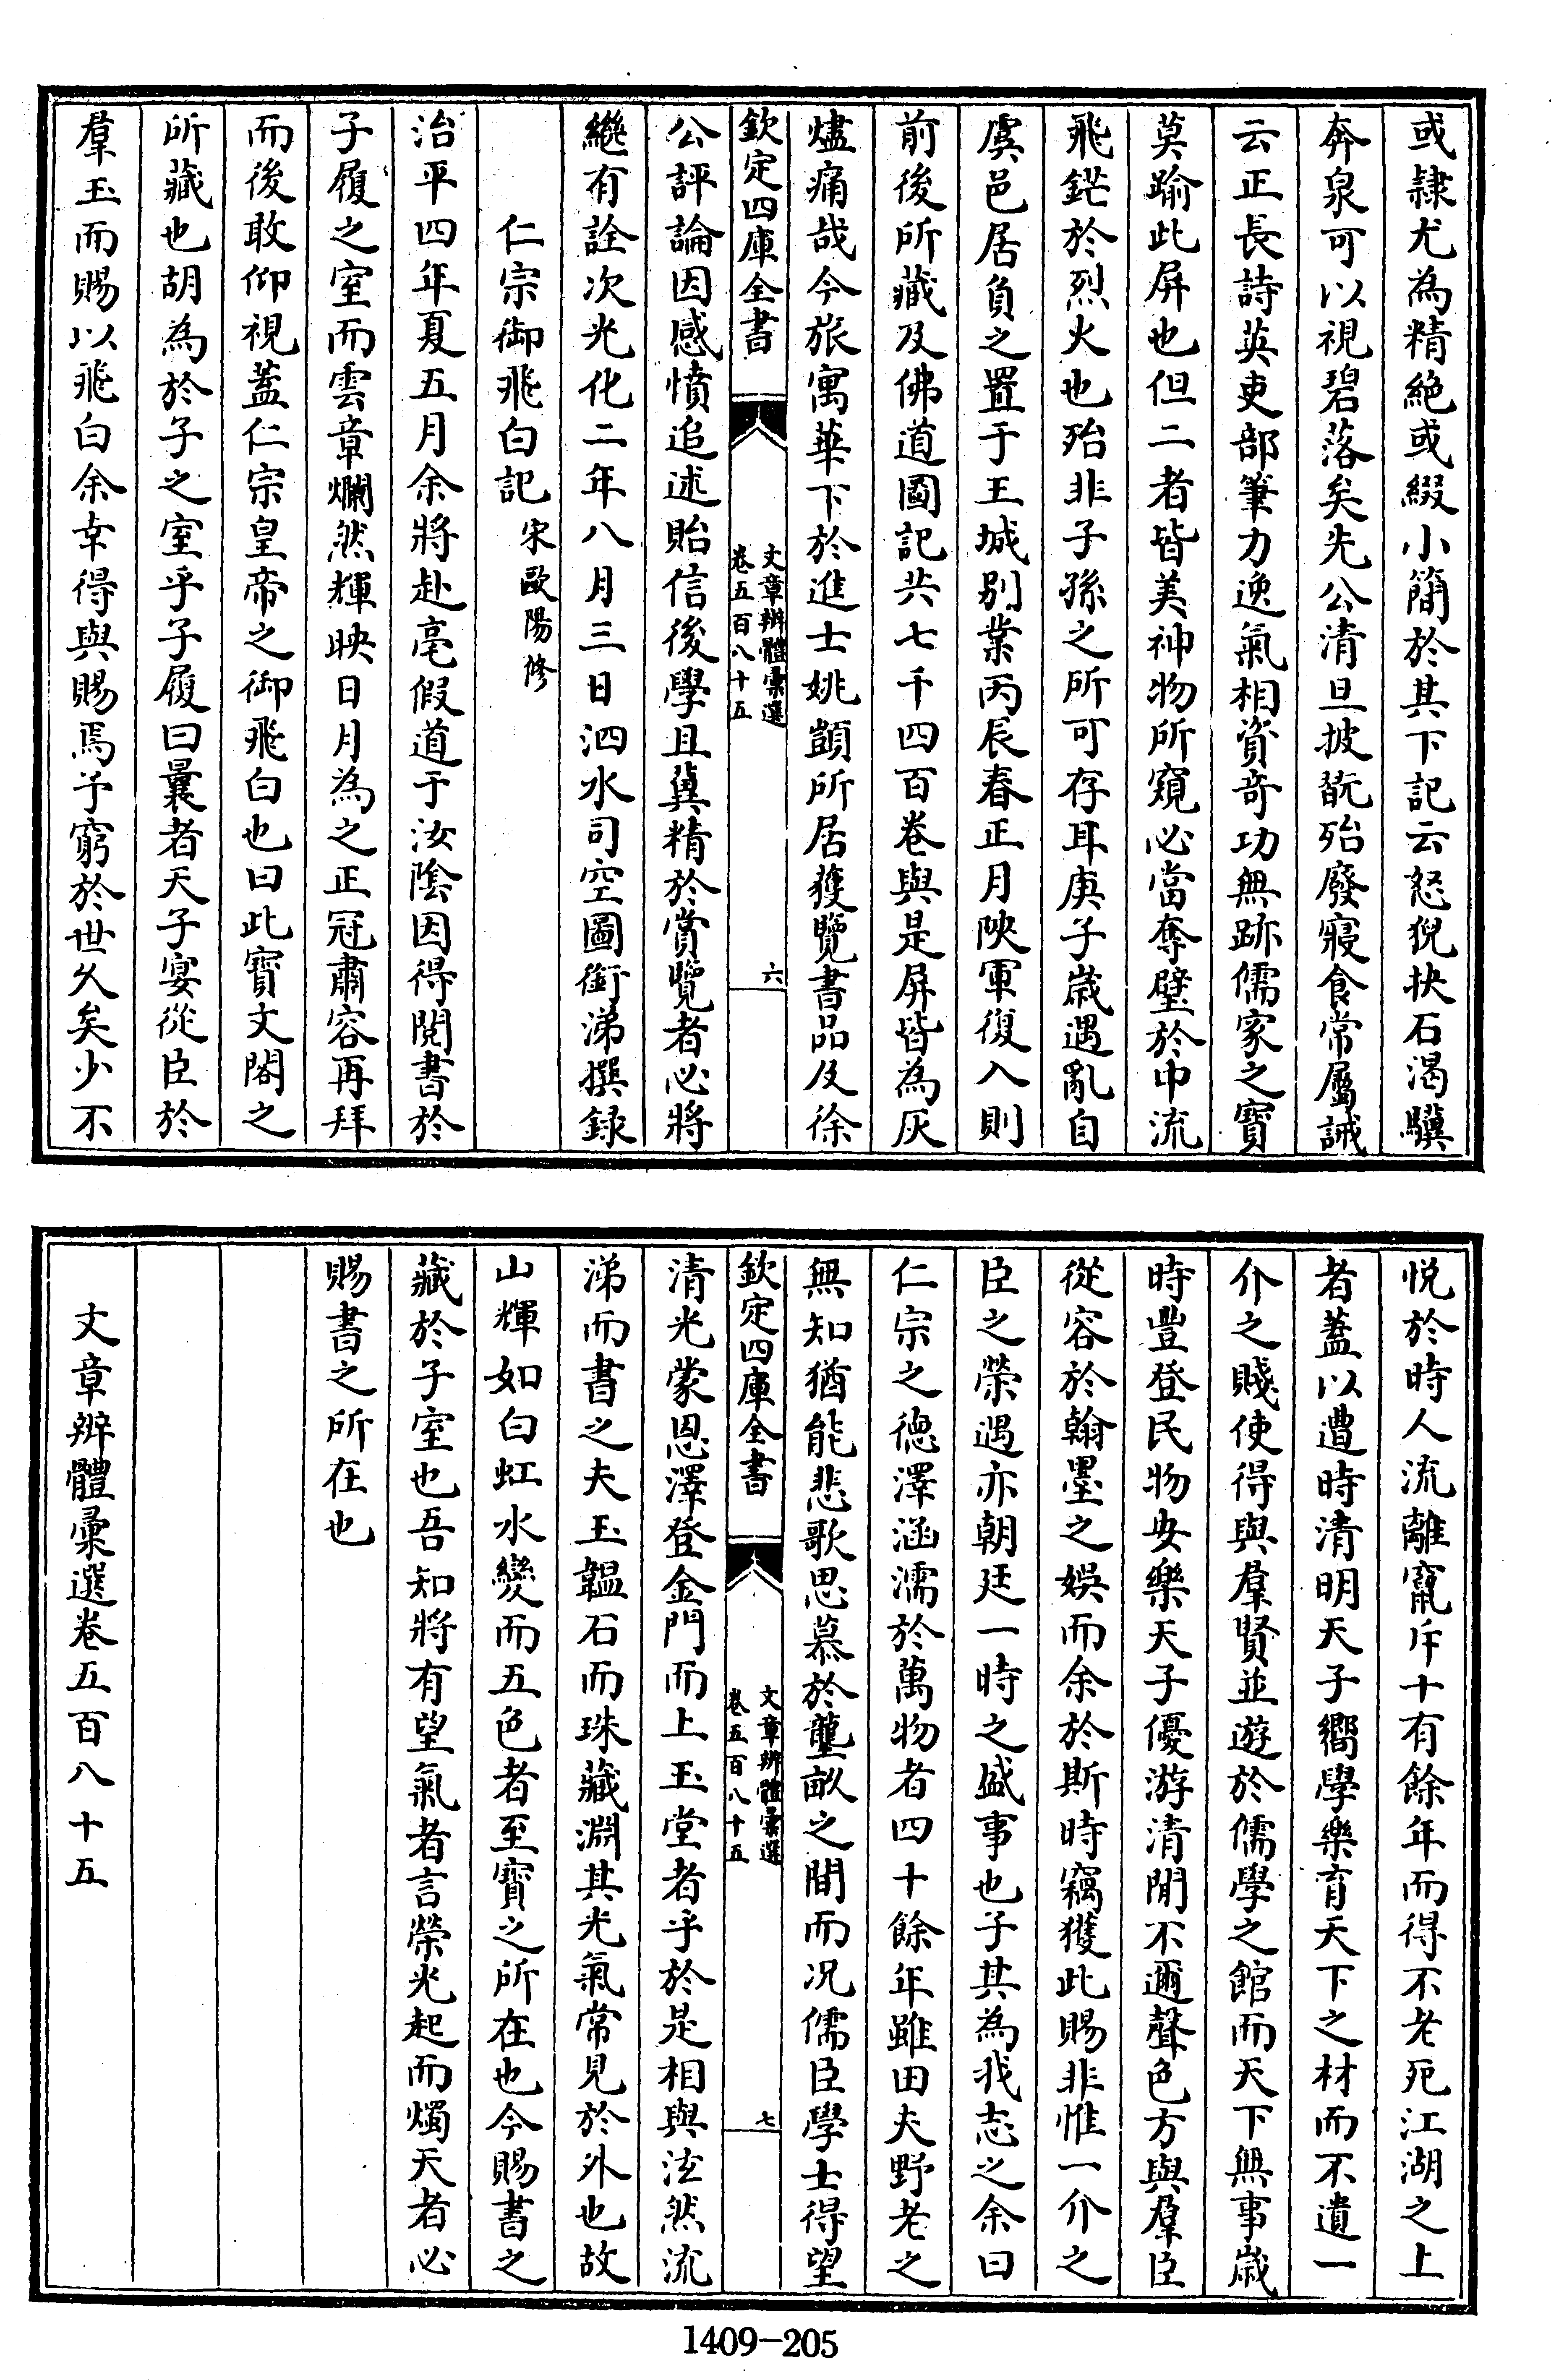 或隷尤為精絶或綴小簡於其下記云怒猊抉石渴驥
奔泉可以視碧落矣先公清旦披翫殆廢寢食常屬誡
云正長詩英吏部筆力逸氣相資奇功無跡儒家之寶
莫踰此屏也但二者皆美神物所窺必當奪璧於中流
飛鋩於烈火也殆非子孫之所可存耳庚子歲遇亂自
虞邑居負之置于王城别業丙辰春正月陜軍復入則
前後所藏及佛道圖記共七千四百卷與是屏皆為灰
燼痛哉今旅寓華下於進士姚顗所居獲覽書品及徐
欽定四庫全書
文章辨體彙選
卷五百八十五
六
公評論因感憤追述貽信後學且冀精於賞覽者必將
繼有詮次光化二年八月三日泗水司空圖銜涕撰録
仁宗御飛白記宋歐陽修
治平四年夏五月余將赴亳假道于汝隂因得閱書於
子履之室而雲章爛然輝映日月為之正冠肅容再拜
而後敢仰視蓋仁宗皇帝之御飛白也曰此寶文閣之
所藏也胡為於子之室乎子履曰曩者天子宴從臣於
羣玉而賜以飛白余幸得與賜焉予窮於世久矣少不
悅於時人流離竄斥十有餘年而得不老死江湖之上
者蓋以遭時清明天子嚮學樂育天下之材而不遺一
介之賤使得與羣賢並遊於儒學之館而天下無事歲
時豐登民物安樂天子優游清閒不邇聲色方與羣臣
從容於翰墨之娛而余於斯時竊獲此賜非惟一介之
臣之榮遇亦朝廷一時之盛事也子其為我志之余曰
仁宗之德澤涵濡於萬物者四十餘年雖田夫野老之
無知猶能悲歌思慕於壟畝之間而况儒臣學士得望
欽定四庫全書
文章辨體彙選
卷五百八十五
七
清光蒙恩澤登金門而上玉堂者乎於是相與泫然流
涕而書之夫玉韞石而珠藏淵其光氣常見於外也故
山輝如白虹水變而五色者至寶之所在也今賜書之
藏於子室也吾知將有望氣者言榮光起而燭天者必
賜書之所在也
文章辨體彙選卷五百八十五
1409-205